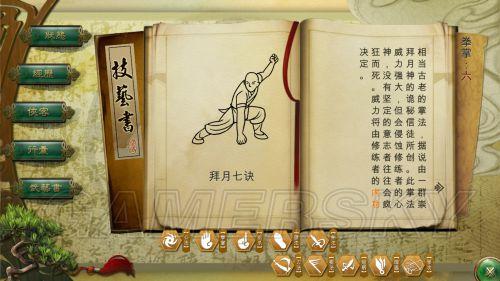 狀態
經歷
俠客
行囊
武藝書
技藝書
拜月七诀
拳掌·六
相当古老的掌法，据说由一群崇
拜月神的诡秘信徒所创。此掌法
威力强大，但会侵蚀修炼者的心
神，没有坚定的意志者往往会疯
狂而死。威力将由修炼者的内功
决定。
GAMERSKY